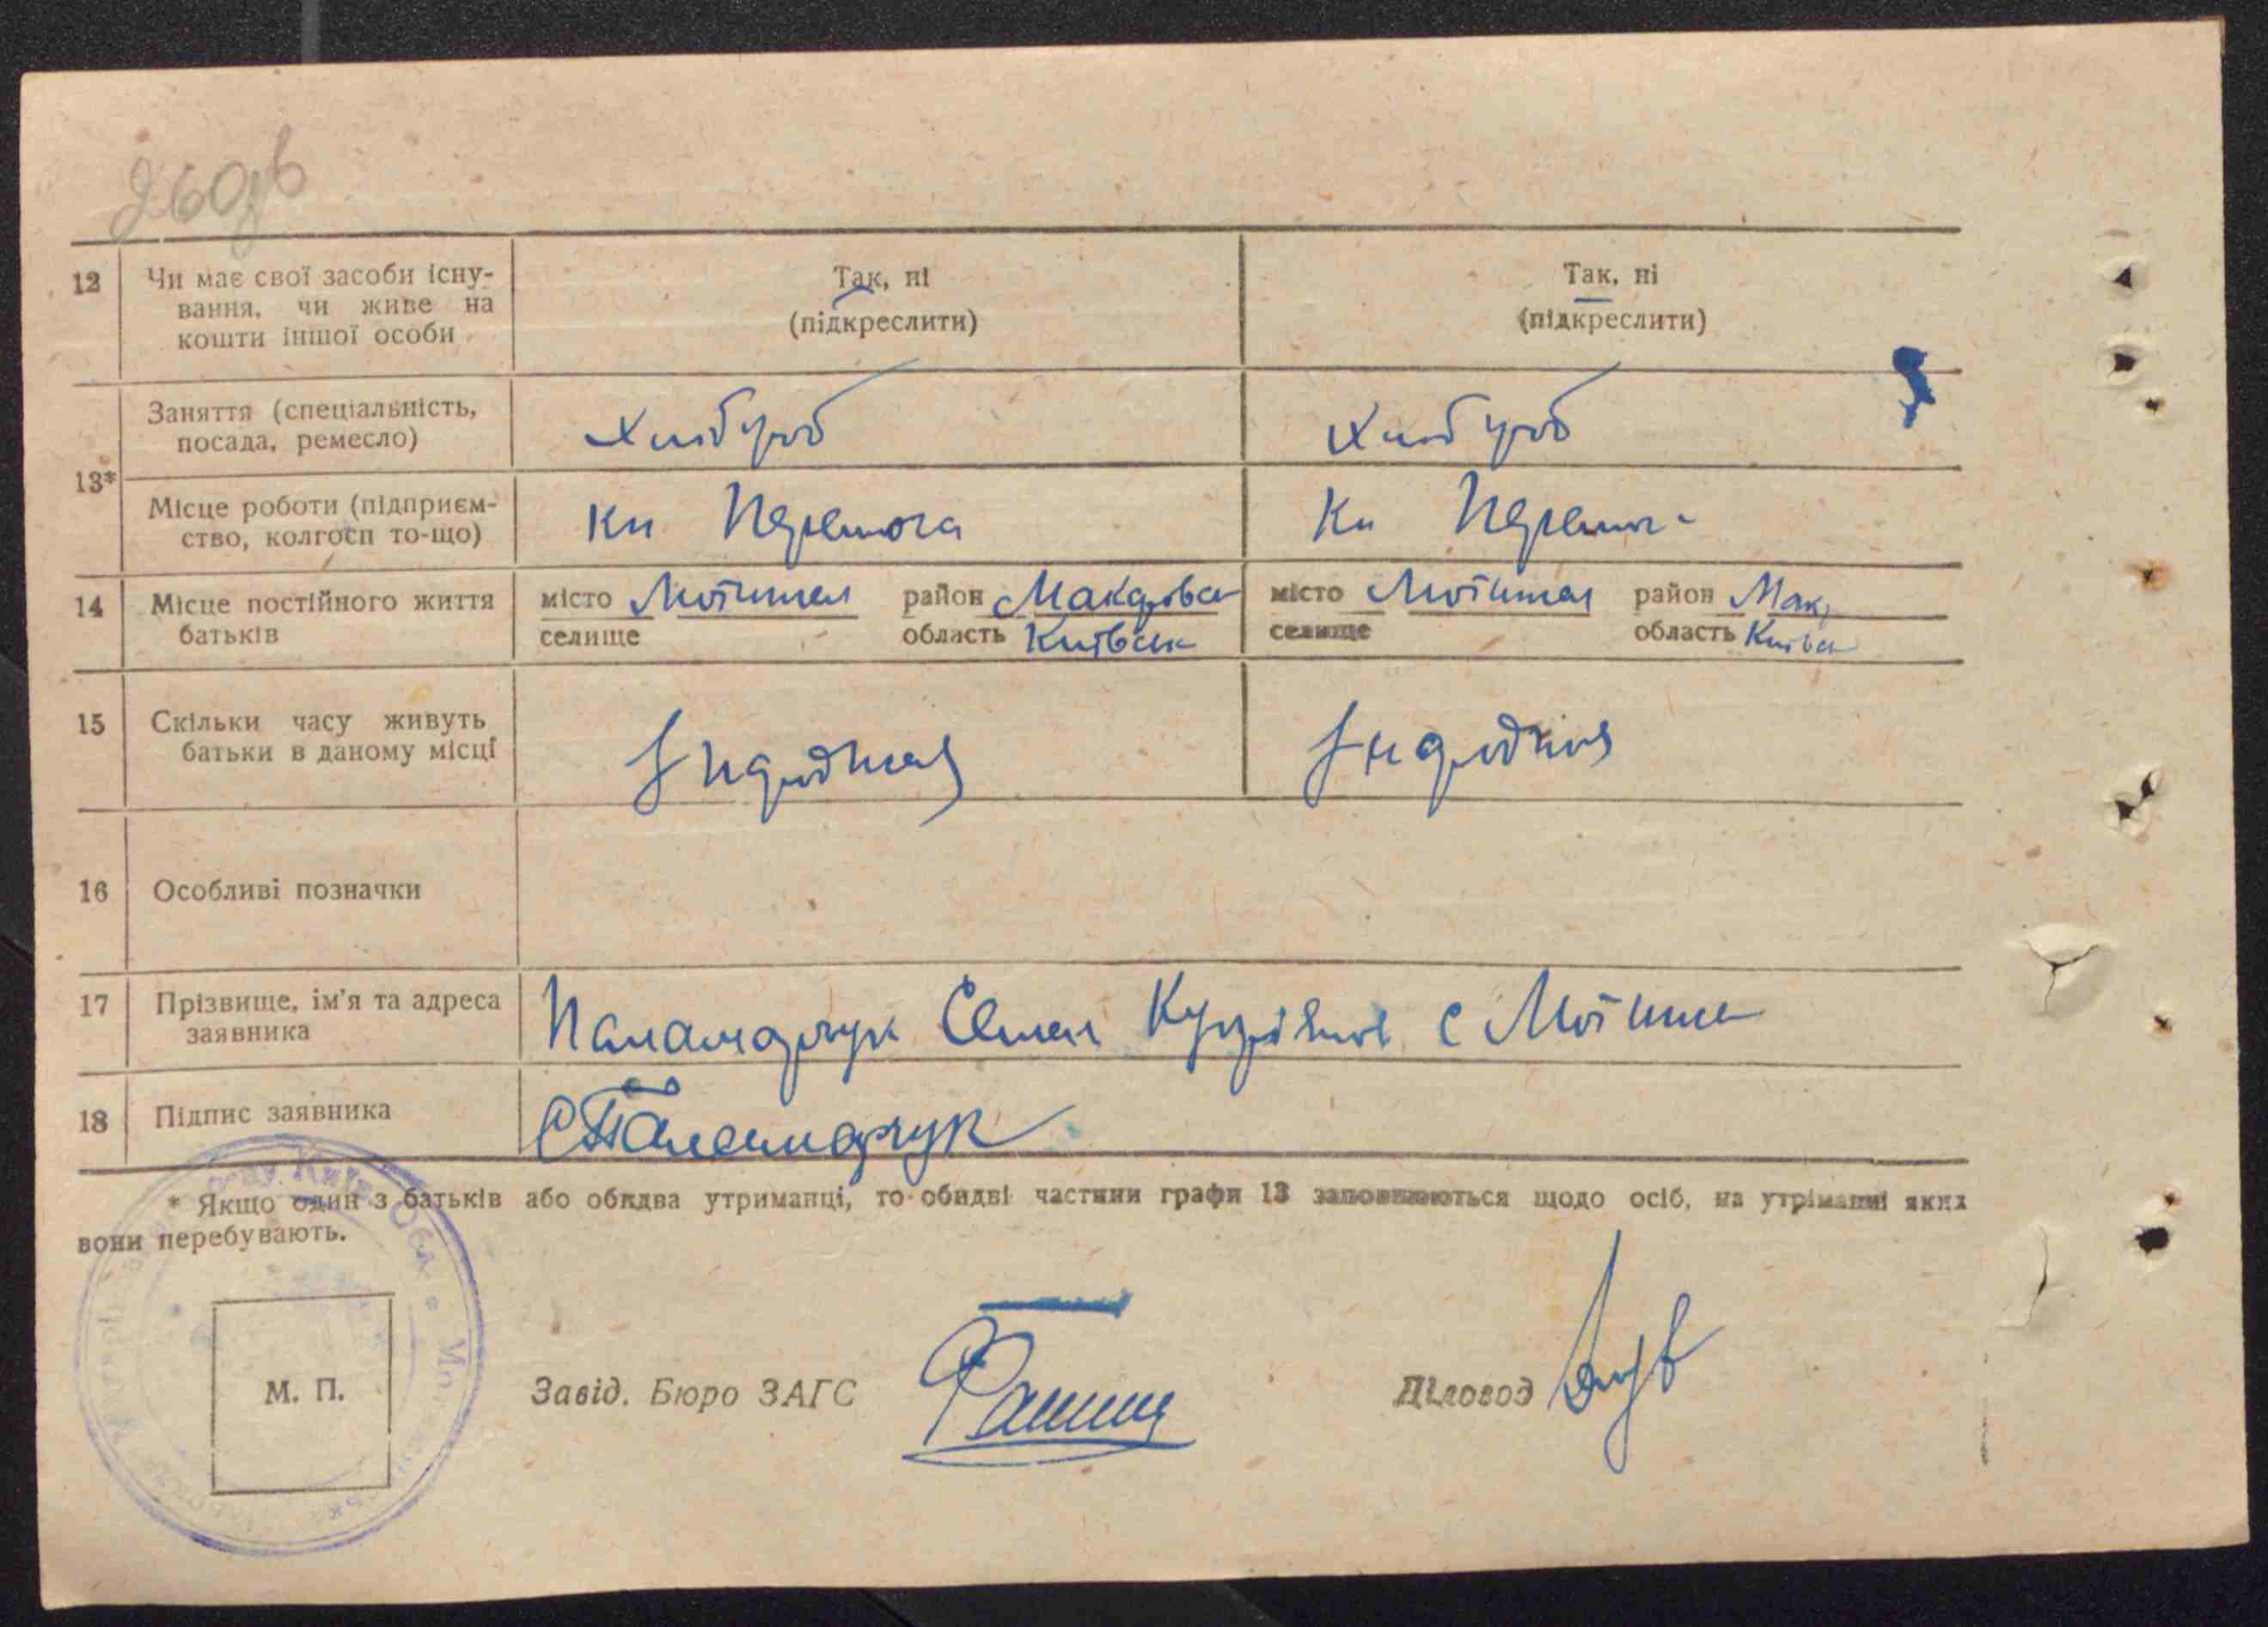 12 Чи має свої засоби існу-
вання, чи живе на
кошти іншої особи
Так, ні
(підкреслити)
Так, ні
(підкреслити)
13*
Заняття (спеціальність,
посада, ремесло)
Хлібороб
Хлібороб
Місце роботи (підприєм-
ство, колгосп то-що)
Кл Перемога
Кл
14 Місце постійного життя
батьків
місто
селище
район Макарівськ
область Київськ
місто
селище
район Мак.
область
15 Скільки часу живуть
батьки в даному місці
16 Особливі позначки
17 Прізвище, ім'я та адреса
заявника
Паламарчук Семен с
18 Підпис заявника
С Паламарчук
* Якщо один з батьків або обидва утриманці, то обидві частини графи 13 заповнюються щодо осіб, на утріманні яких
вони перебувають.
М. П.
Завід. Бюро ЗАГС
Діловод